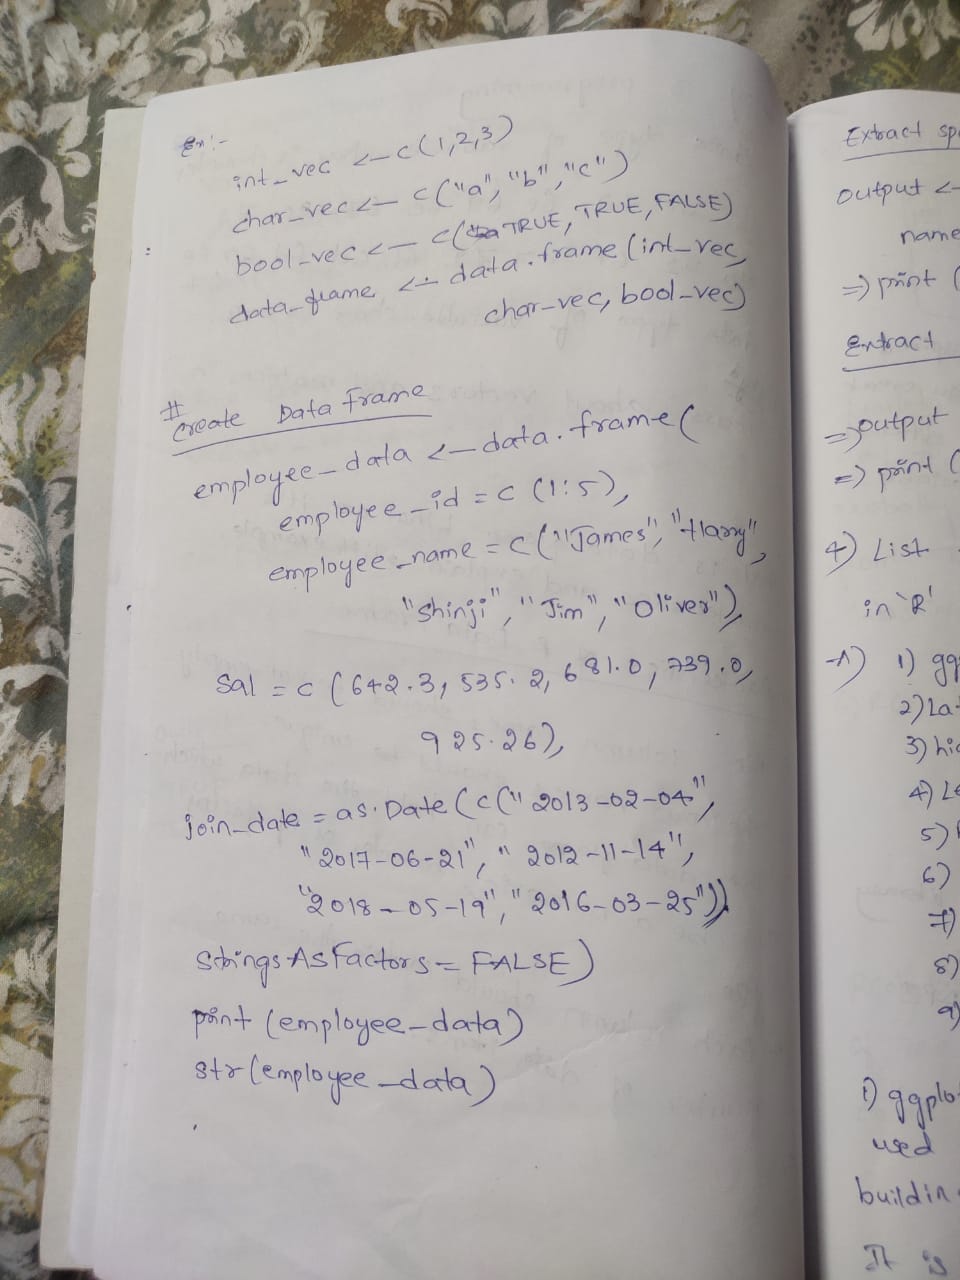 Ex:-
int_vec <- c(1,2,3)
char_vec <- c("a", "b", "c")
bool_vec <- c(TRUE, TRUE, FALSE)
data_frame <- data.frame(int_vec,
char_vec, bool_vec)
# Create Data Frame
employee_data <- data.frame(
employee_id = c(1:5),
employee_name = c("James", "Harry",
"Shinji", "Jim", "Oliver"),
Sal = c(642.3, 535.2, 681.0, 739.0,
925.26),
join_date = as.Date(c("2013-02-04",
"2017-06-21", "2012-11-14",
"2018-05-19", "2016-03-25")),
StringsAsFactors = FALSE)
print (employee_data)
str(employee_data)
Extract
output <-
name
=> print (
Extract
=> output
=> print (
4) List
in 'R'
A) 1)
2)
3)
4)
5)
6)
7)
8)
9)
1)
used
It is